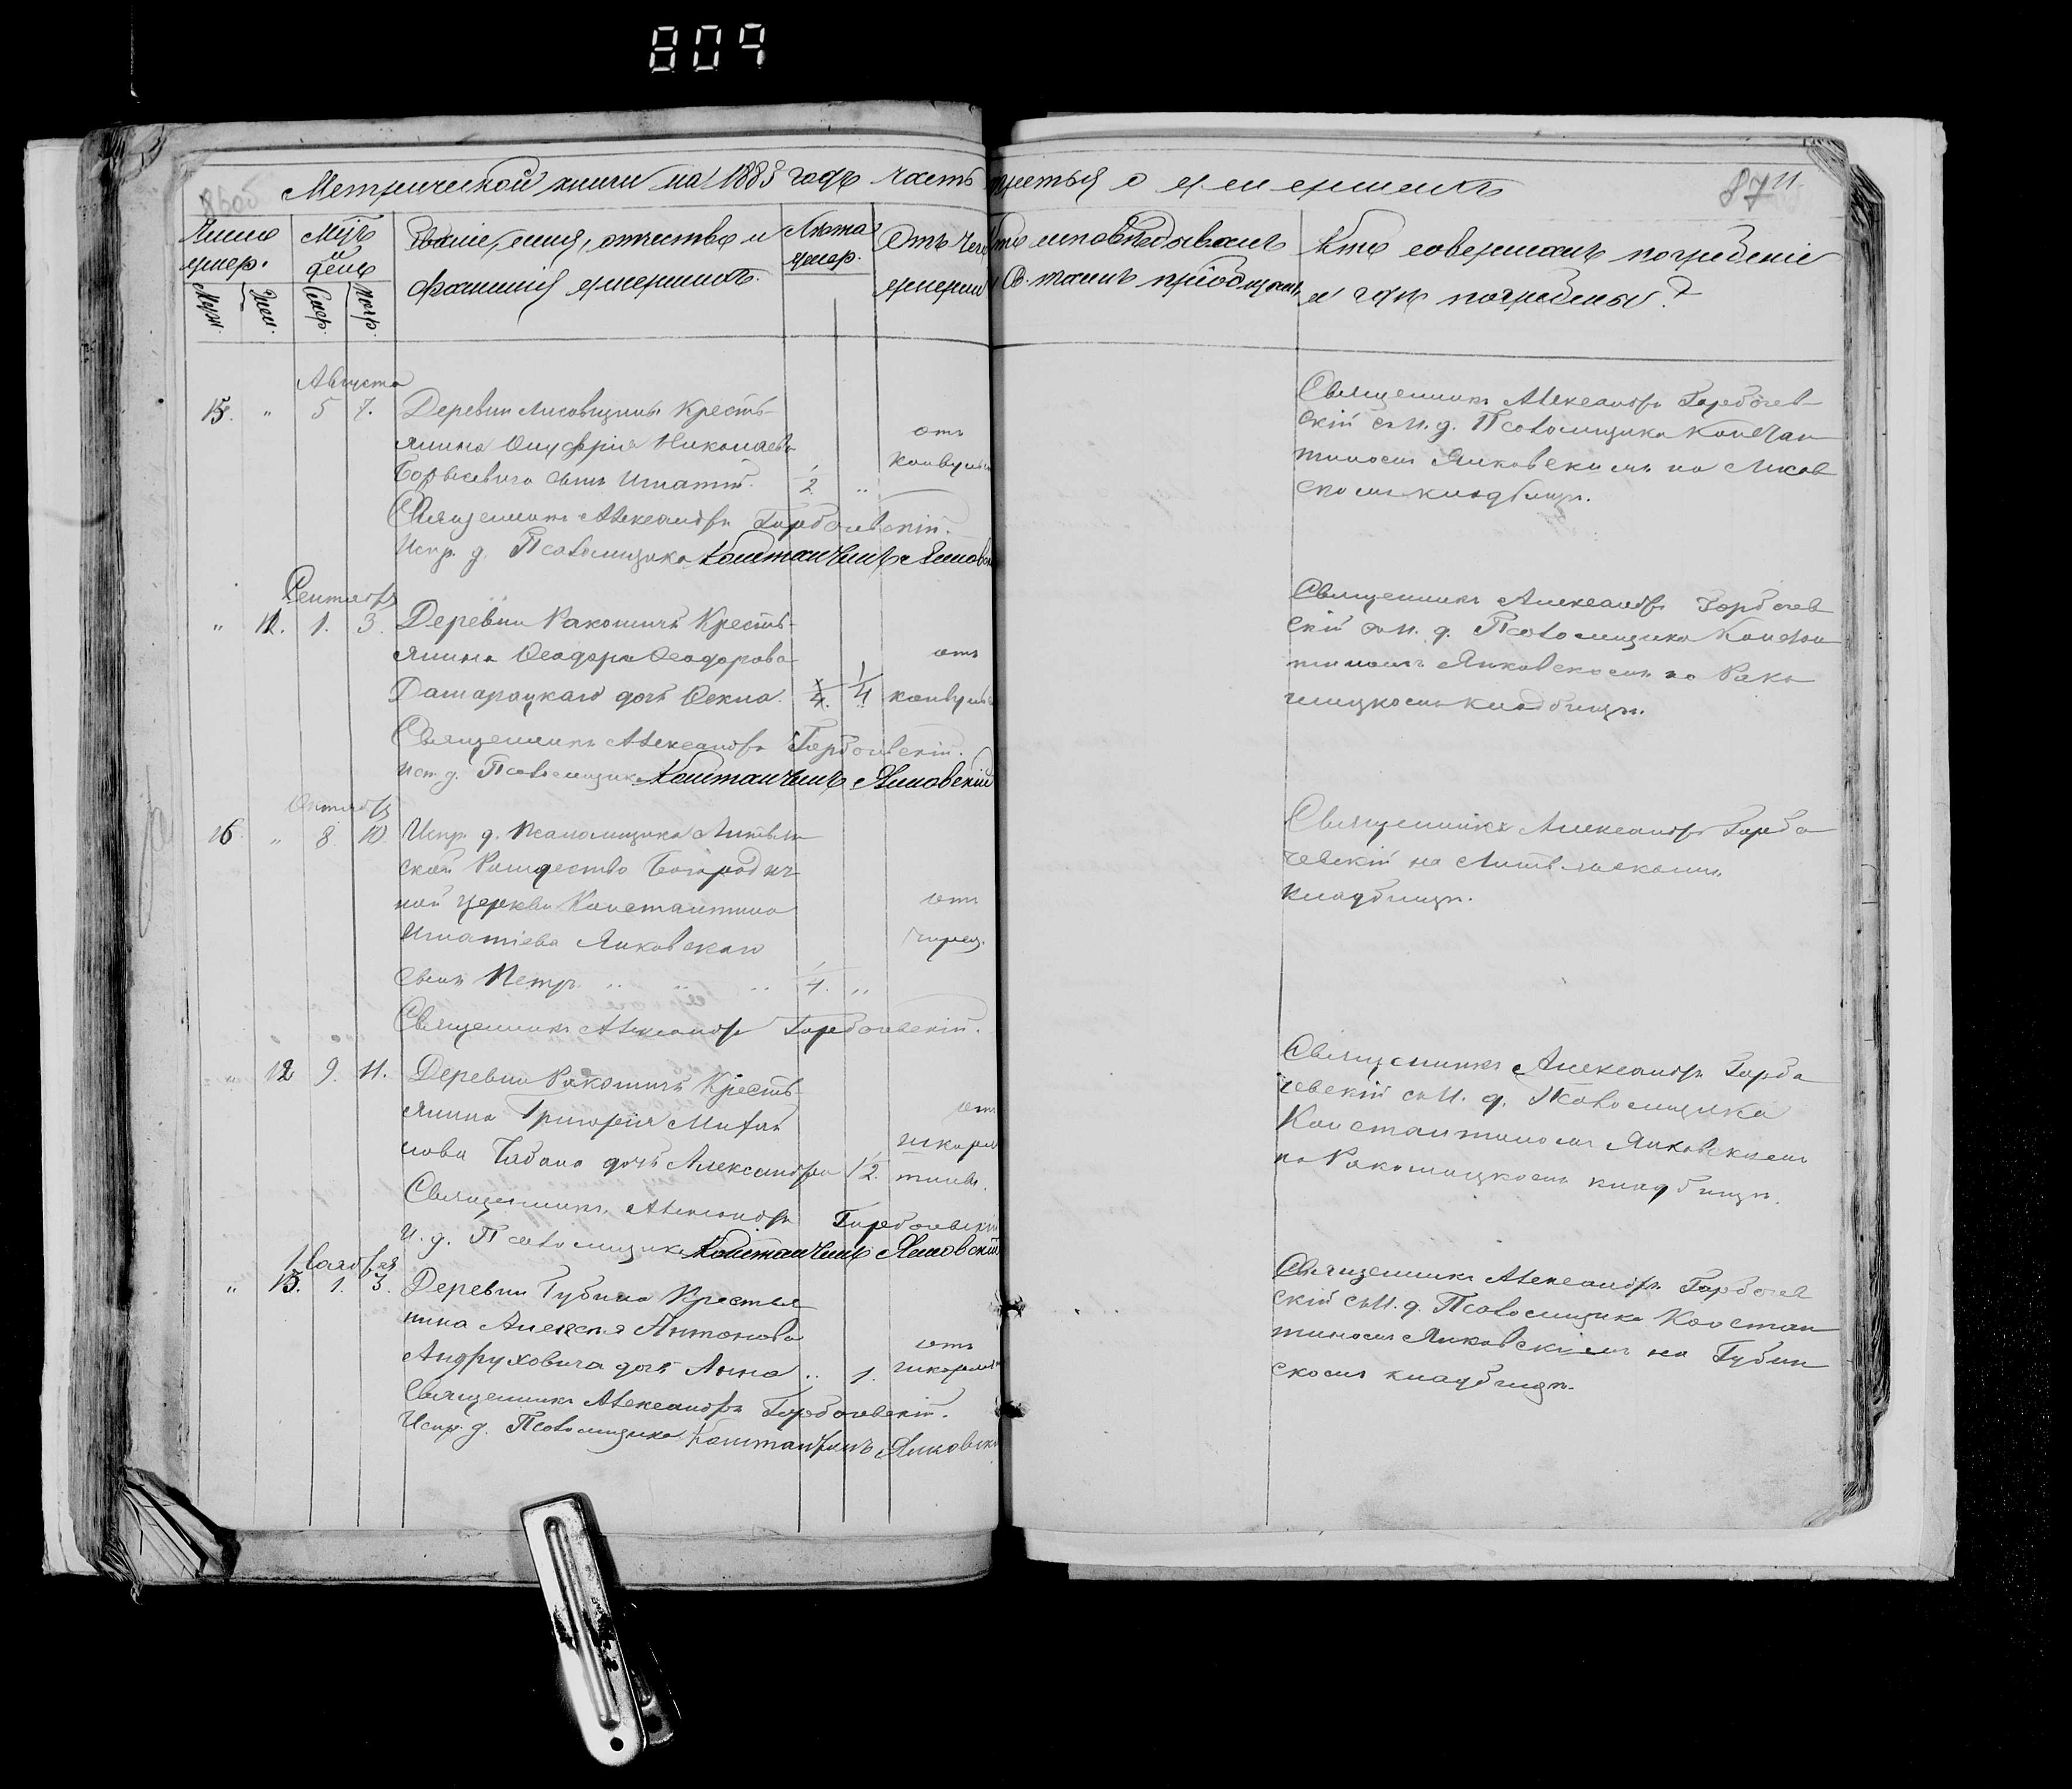 809
Метрической книги на 1883 годъ часть третья о умершихъ
87
Число умер.
Муж.
Жен.
Мѣсяцъ и день
Смер.
Погр.
Званіе, имя, отчество и
фамилія умершихъ.
Лѣта
умер.
Отъ чего
умерли
Кто исповѣдывалъ
и Св. таинъ пріобщалъ
Кто совершалъ погребеніе
и гдѣ погребены?
Августа
15. " 5 7.
Деревни Лисовщины Кресть-
янина Онуфрія Николаева
Борысевича сынъ Игнатій. 1/2 "
отъ
конвульс
Священникъ Александръ Горбачевскій.
Испр. д. Псаломщика Константинъ Янковск
Священникъ Александръ Горбачев
скій съ И. д. Псаломщика Констан
тиномъ Янковскимъ на Лисов
скомъ кладбищѣ.
Сентября
" 11. 1. 3.
Деревни Ракошичъ Кресть-
янина Ѳеодора Ѳеодорова
дочь Ѳекла. 1/4
отъ
конвульс
Священникъ Александръ Горбачевскій.
Исп. д. Псаломщика Константинъ Янковскій
Священникъ Александръ Горбачев
скій съ И. д. Псаломщика Констан
тиномъ Янковскимъ на Рако
шицкомъ кладбищѣ.
Октября
16. " 8. 10.
Испр. д. Псаломщика Литвян
ской Рождество Богородич
ной церкви Константина
Игнатіева Янковскаго
сынъ Петръ 1/4. "
отъ
Священникъ Александръ Горбачевскій.
Священникъ Александръ Горба
чевскій на Литвянскомъ
кладбищѣ.
" 12 9. 11.
Деревни Ракошичъ Кресть
янина Григорія Михаи
лова Чабана дочь Александра 1/2.
отъ
скарла
тины.
Священникъ Александръ Горбачевскій
И. д. Псаломщика Константинъ Янковскій
Священникъ Александръ Горба
чевскій съ И. д. Псаломщика
Константиномъ Янковскимъ
на Ракошицкомъ кладбищѣ.
Ноября
" 13. 1. 3.
Деревни Губина Крестья
нина Алексѣя Антонова
Андруховича дочь Анна .. 1.
отъ
скарлат
Священникъ Александръ Горбачевскій.
Испр. д. Псаломщика Константинъ Янковск
Священникъ Александръ Горбачев
скій съ И. д. Псаломщика Констан
тиномъ Янковскимъ на Губин
скомъ кладбищѣ.